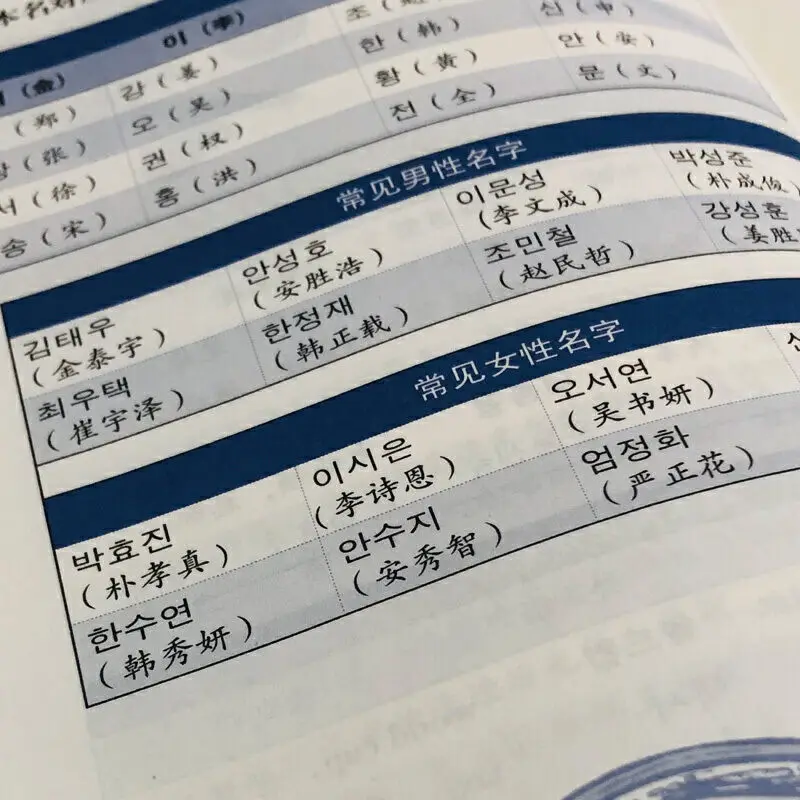 이（李）
（金）
조
신（申）
（郑）
강（姜）
한（韩）
안（安）
（张）
오（吴）
황（黄）
문（文）
서（徐）
권（权）
전（全）
송（宋）
홍（洪）
常见男性名字
김태우
（金泰宇）
안성호
（安胜浩）
이문성
（李文成）
박성준
（朴成俊）
최우택
（崔宇泽）
한정재
（韩正载）
조민철
（赵民哲）
강성훈
（姜胜
常见女性名字
박효진
（朴孝真）
이시은
（李诗恩）
오서연
（吴书妍）
한수연
（韩秀妍）
안수지
（安秀智）
엄정화
（严正花）